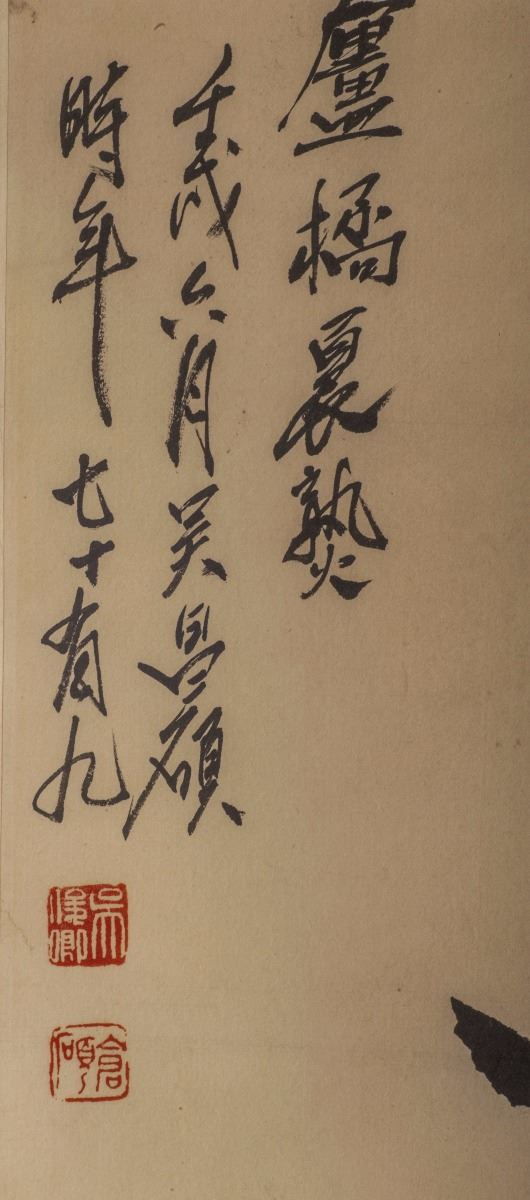 盧橘夏熟
壬戌六月吴昌碩
時年七十有九
吴俊卿
倉碩